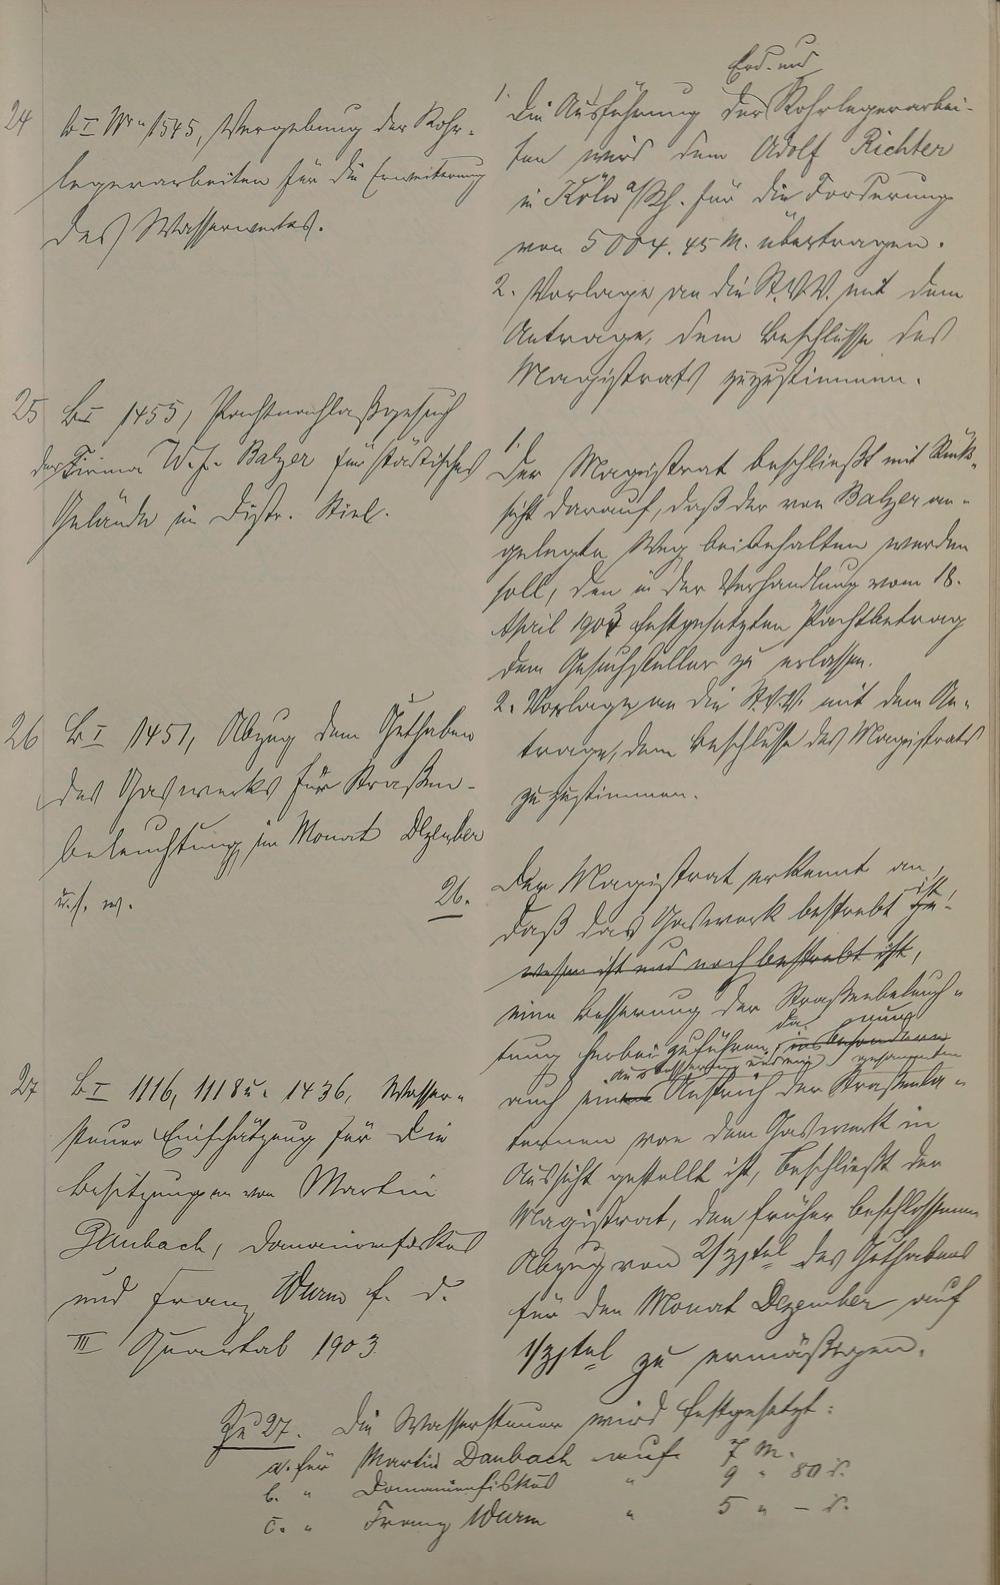 24 B I Nr. 1545, Vergebung der Rohr-
legerarbeiten für die Erweiterung
des Wasserwerkes.
Erd- und
1. Die Ausführung der Rohrlegerarbei-
ten wird dem Adolf Richter
in Köln a/Rh. für die Forderung
von 5004.45 M. übertragen.
2. Vorlage an die St.V.V. mit dem
Antrage, dem Beschlusse des
Magistrats zuzustimmen.
25 B I 1455, Pachtnachlaßgesuch
der Firma W. f. Balzer für städtisches
Gelände im Distr. Stiel.
1.
Der Magistrat beschließt mit Rück-
sicht darauf, daß der von Balzer an-
gelegte Weg beibehalten werden
soll, den in der Verhandlung vom 18.
April 1903 festgesetzten Pachtbetrag
dem Gesuchsteller zu erlassen.
2. Vorlage an die St.V.V. mit dem An-
trage, dem Beschlusse des Magistrats
zuzustimmen.
26 B I 1451, Abzug dem Guthaben
des Gaswerks für Straßen-
beleuchtung im Monat Dezember
u.s.w.
26. Der Magistrat erkennt an,
daß das Gaswerk bestrebt ist ge-
wesen ist und noch bestrebt ist,
eine Besserung der Straßenbeleuch-
tung herbeizuführen, da nun
insbesondere
Ausbesserung und gesammten
auch Anstrich der Straßenla-
ternen von dem Gaswerk in
Aussicht gestellt ist, beschließt der
Magistrat, den früher beschlossenen
Abzug von 2/3tel des Guthabens
für den Monat Dezember auf
1/3tel zu ermäßigen.
27 B I 1116, 1118 u. 1436, Wasser-
steuer Einschätzung für die
Besitzungen von Martin
Daubach, Domänenfiskus
und Franz Wurm f. d.
III Quartal 1903.
Zu 27. Die Wassersteuer wird festgesetzt:
a. für Martin Daubach auf 7 M.
b. " Domänenfiskus " 9 " 80 d.
c. " Franz Wurm " 5 " – d.